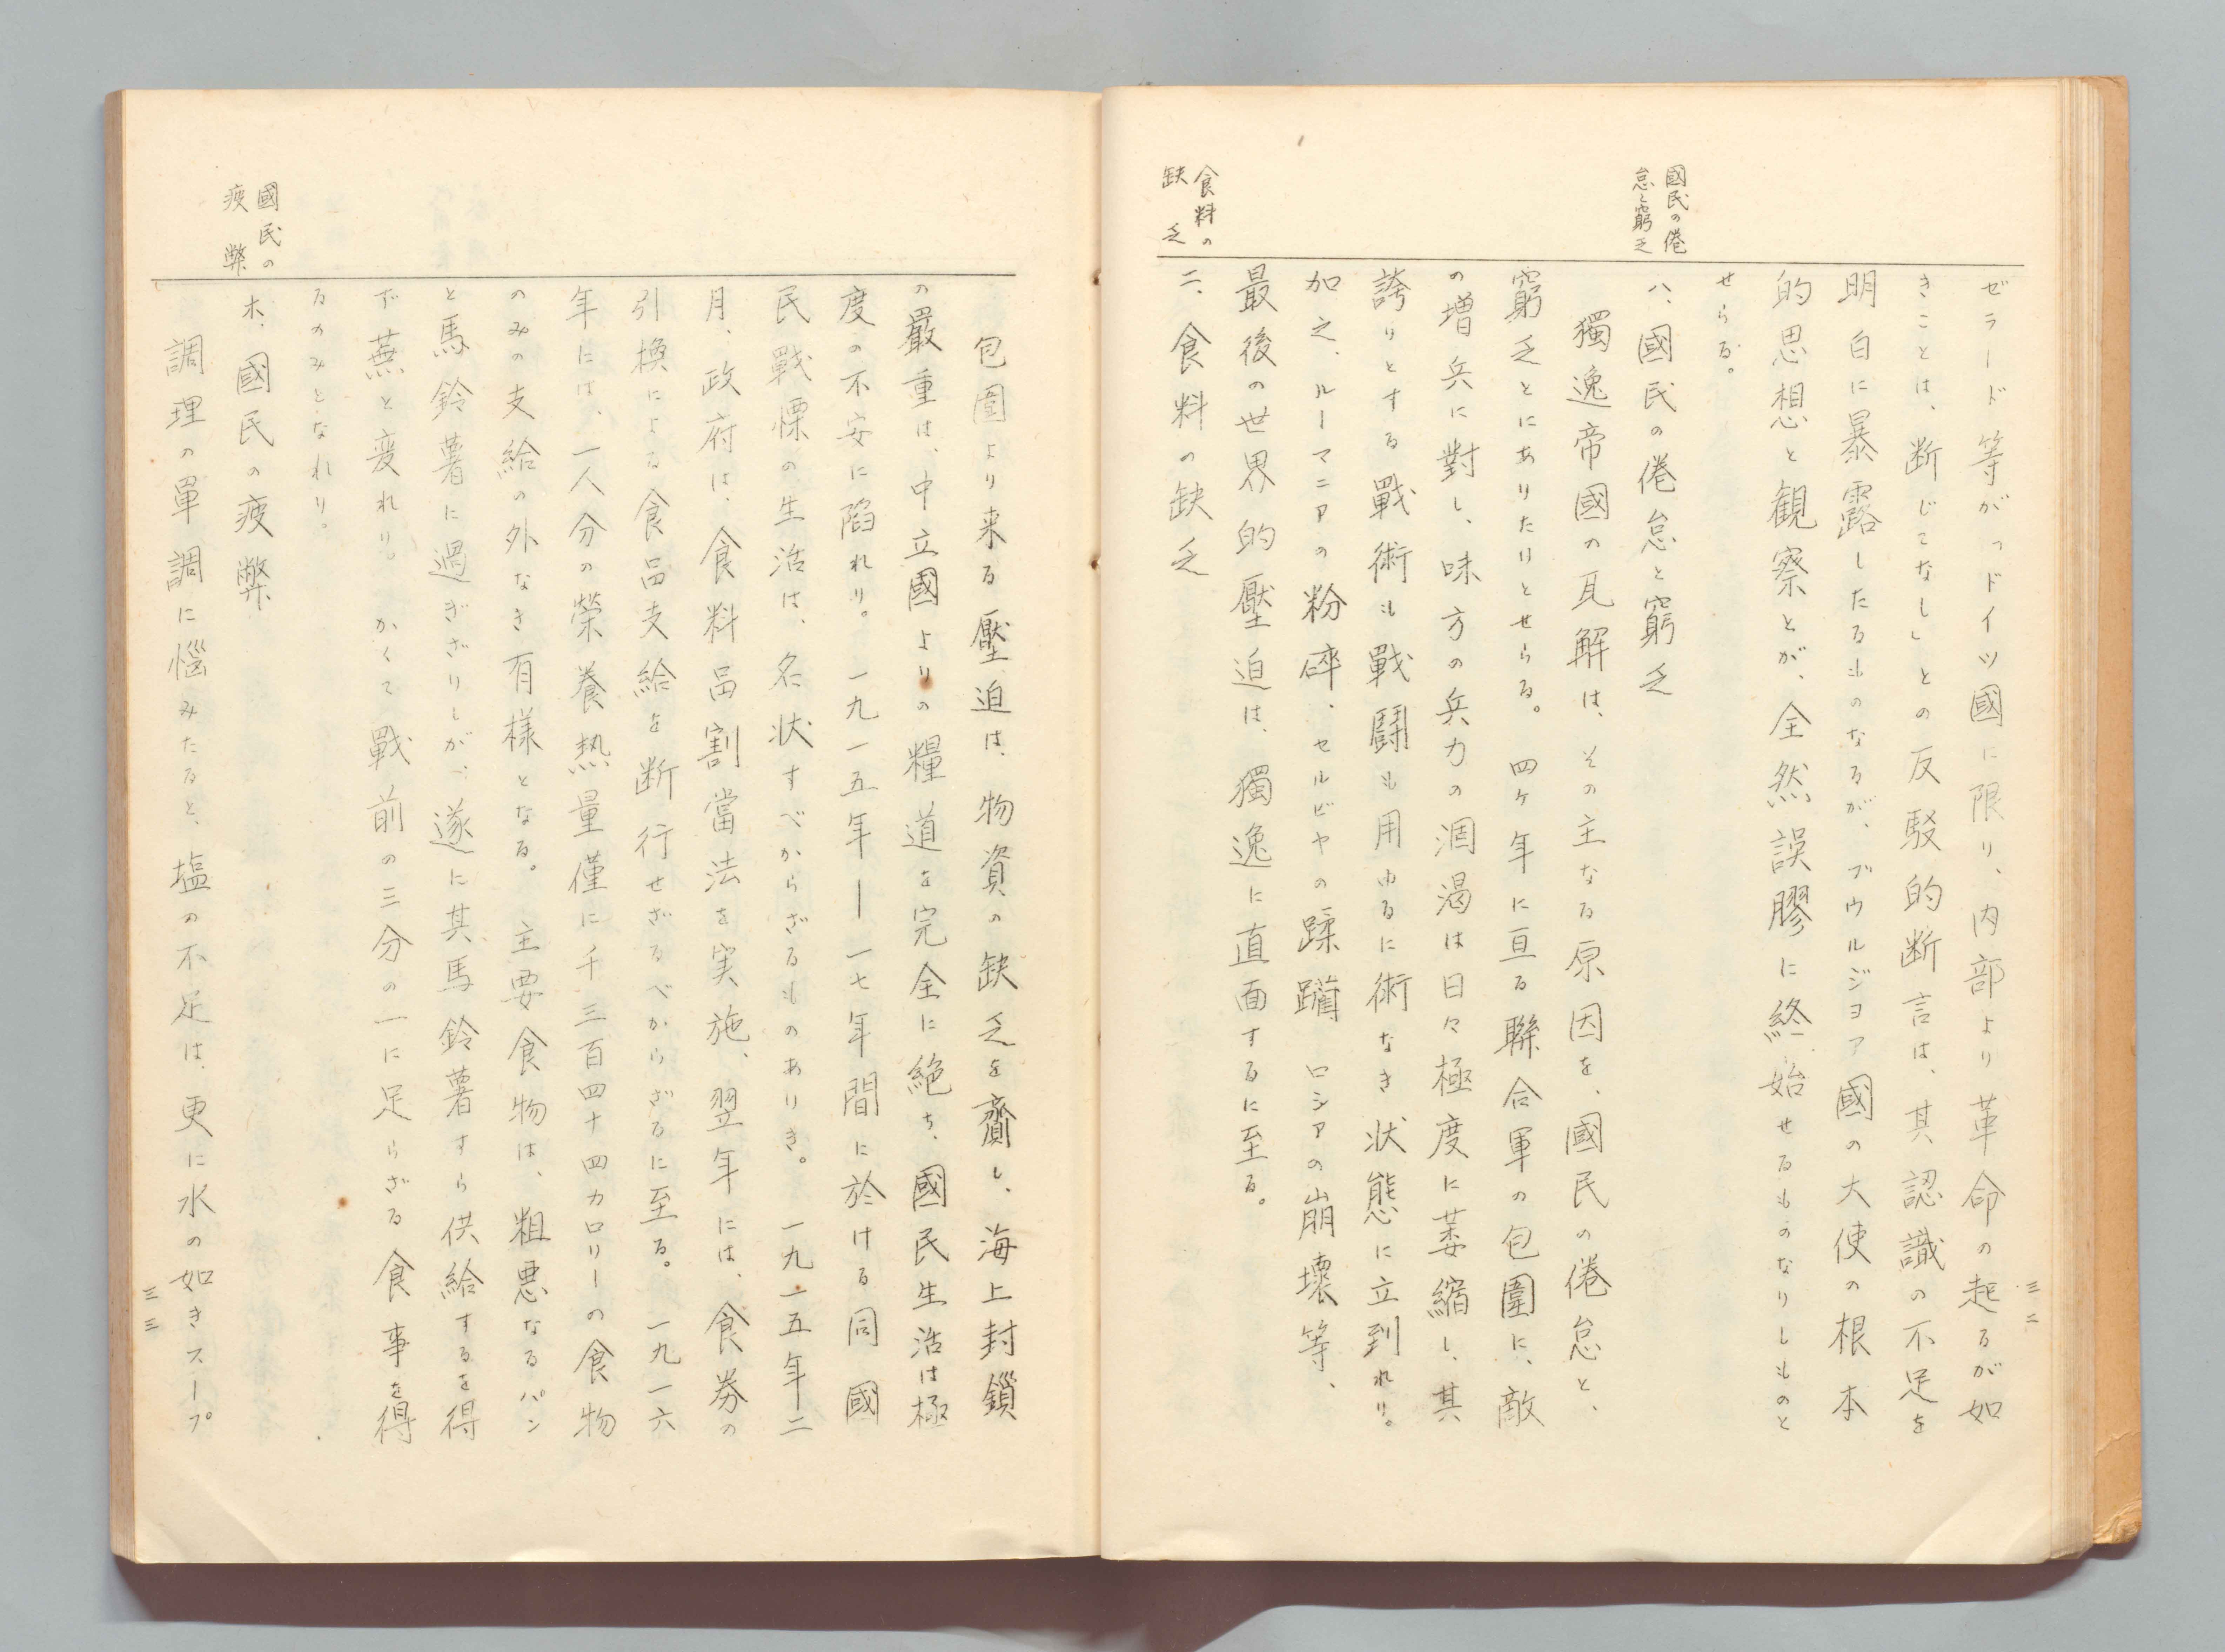 三二
ゼラード等が「ドイツ國に限り、内部より革命の起るが如
きことは、断じてなし」との反駁的断言は、其認識の不足を
明白に暴露したるものなるが、ブウルジヨア國の大使の根本
的思想と観察とが、全然誤膠に終始せるものなりしものと
せらる。
國民の倦
怠と窮乏
八、國民の倦怠と窮乏
獨逸帝國の瓦解は、その主なる原因を、國民の倦怠と、
窮乏とにありたりとせらる。四ケ年に亘る聯合軍の包圍に、敵
の増兵に對し、味方の兵力の涸渇は日々極度に萎縮し、其
誇りとする戰術も戰鬪も用ゆるに術なき状態に立到れり。
加之、ルーマニアの粉碎、セルビヤの蹂躙　ロシアの崩壊等、
最後の世界的壓迫は、獨逸に直面するに至る。
食料の
缺乏
二、食料の缺乏
包圍より来る壓迫は、物資の缺乏を齎し、海上封鎖
の嚴重は、中立國よりの糧道を完全に絶ち、國民生活は極
度の不安に陷れり。一九一五年―一七年間に於ける同國
民戰慄の生活は、名状すべからざるものありき。一九一五年―二
月、政府は、食料品割當法を実施、翌年には、食券の
引換による食品支給を断行せざるべからざるに至る。一九一六
年には、一人分の榮養热量僅に千三百四十四カロリーの食物
のみの支給の外なき有様となる。主要食物は、粗悪なるパン
と馬鈴薯に過ぎざりしが、遂に其馬鈴薯すら供給するを得
ず蕪と变れり。かくて戰前の三分の一に足らざる食事を得
るのみとなれり。
國民の
疲弊
木、國民の疲弊
調理の單調に惱みたると、塩の不足は、更に水の如きスープ
三三